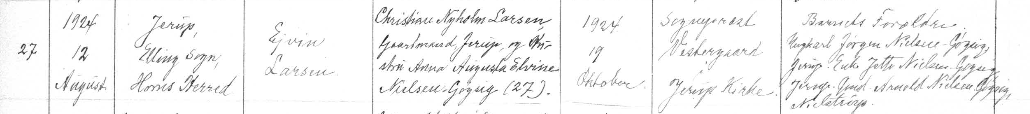 27
1924
12
August
Jerup,
Elling Sogn,
Horns Herred
Ejvin
Larsen
Christian Nyholm Larsen
Gaardmand, Jerup, og Hu-
stru Anna Augusta Elvine
Nielsen-Gøgsig (27).
1924
19
Oktober
Sognepræst
Vestergaard
Jerup Kirke.
Barnets Forældre.
Ungkarl Jørgen Nielsen-Gøgsig,
Jerup. Enke Jette Nielsen-Gøgsig,
Jerup. Gmd. Arnold Nielsen-Gøgsig,